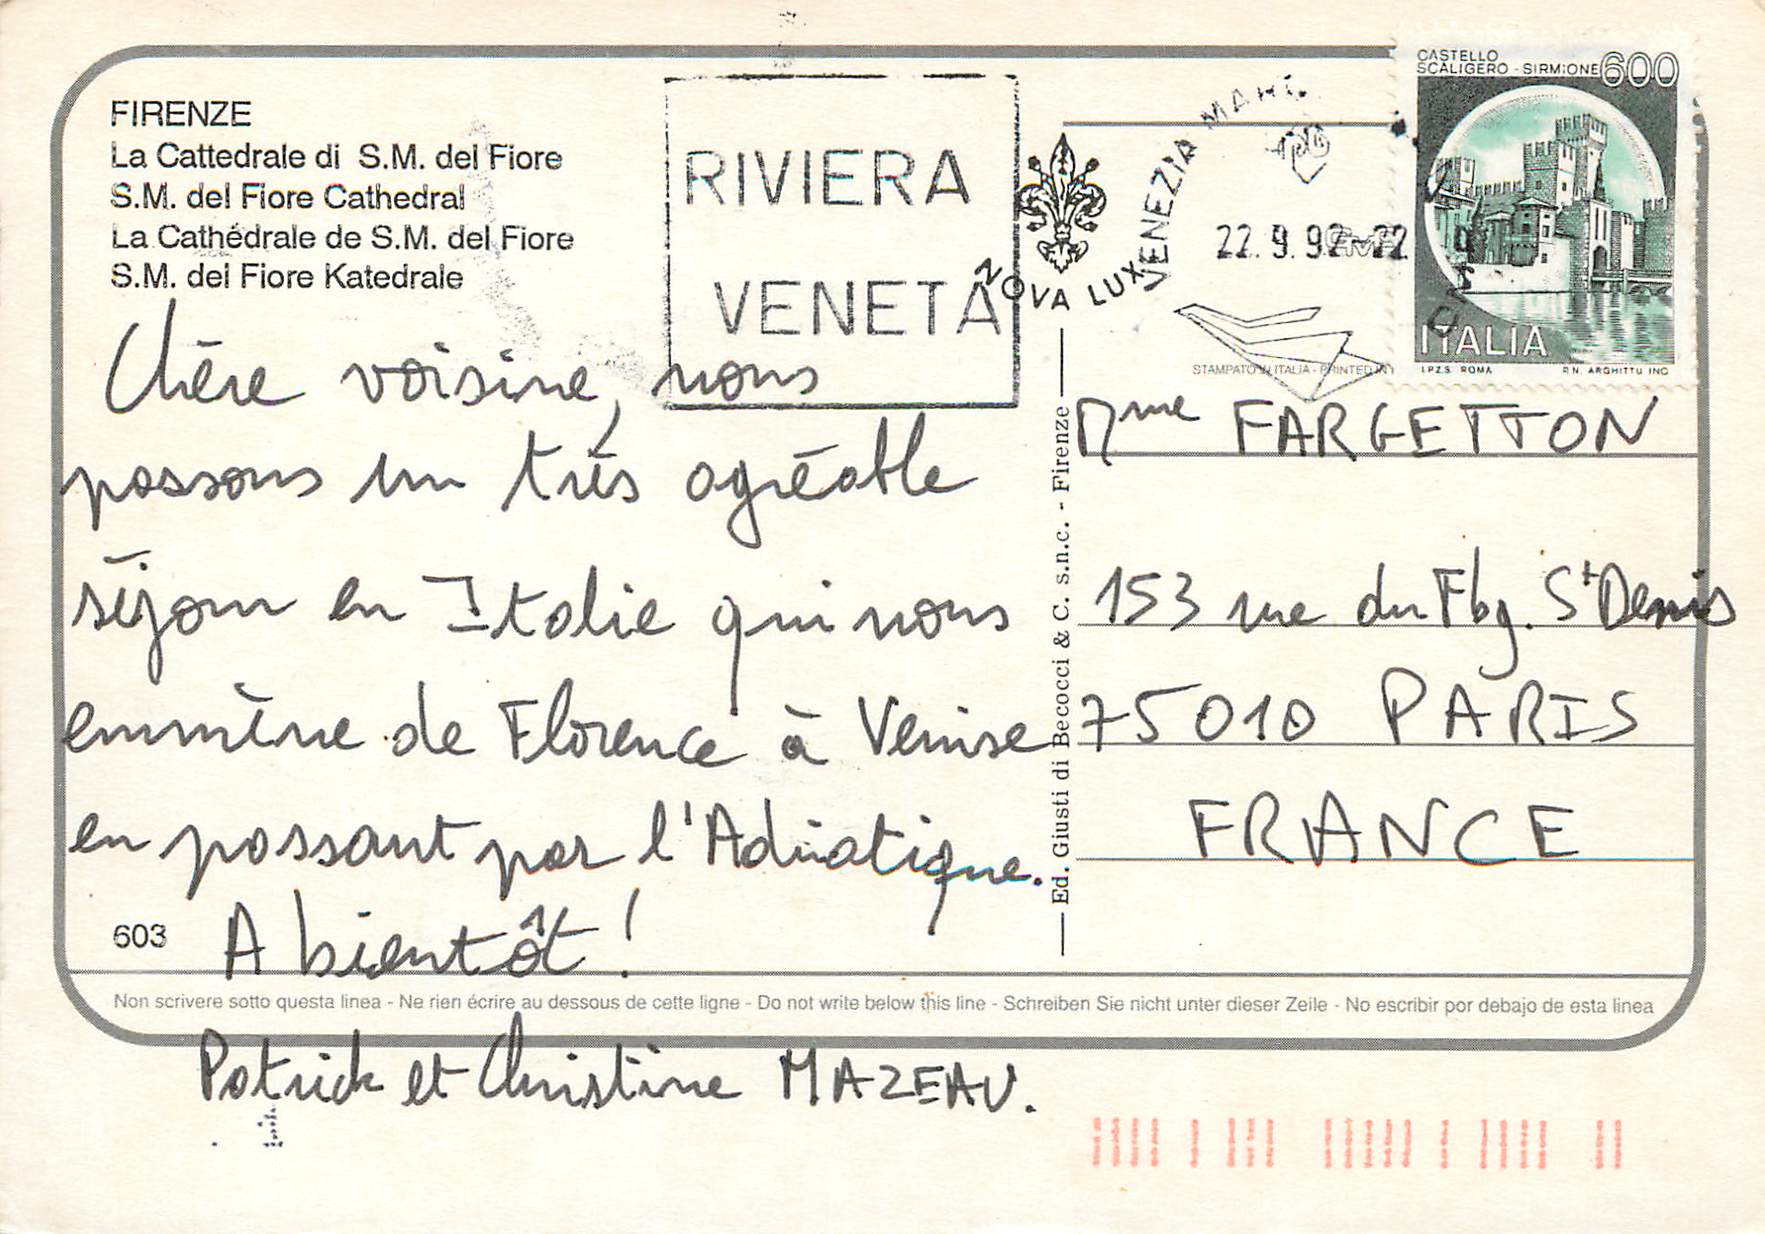 FIRENZE
La Cattedrale di S.M. del Fiore
S.M. del Fiore Cathedral
La Cathédrale de S.M. del Fiore
S.M. del Fiore Katedrale
RIVIERA
VENETA
NOVA LUX
VENEZIA
22.9.92-22
CASTELLO
SCALIGERO - SIRMIONE 600
ITALIA
I.P.Z.S. ROMA R.N. ARGHITTU INC
STAMPATO IN ITALIA - PRINTED IN I
Chère voisine, nous
passons un très agréable
séjour en Italie qui nous
emmène de Florence à Venise
en passant par l'Adriatique.
A bientôt !
Patrick et Christine MAZEAU.
603
Ed. Giusti di Becocci & C. s.n.c. - Firenze
Mme FARGETTON
153 rue du Fbg. St Denis
75010 PARIS
FRANCE
Non scrivere sotto questa linea - Ne rien écrire au dessous de cette ligne - Do not write below this line - Schreiben Sie nicht unter dieser Zeile - No escribir por debajo de esta linea